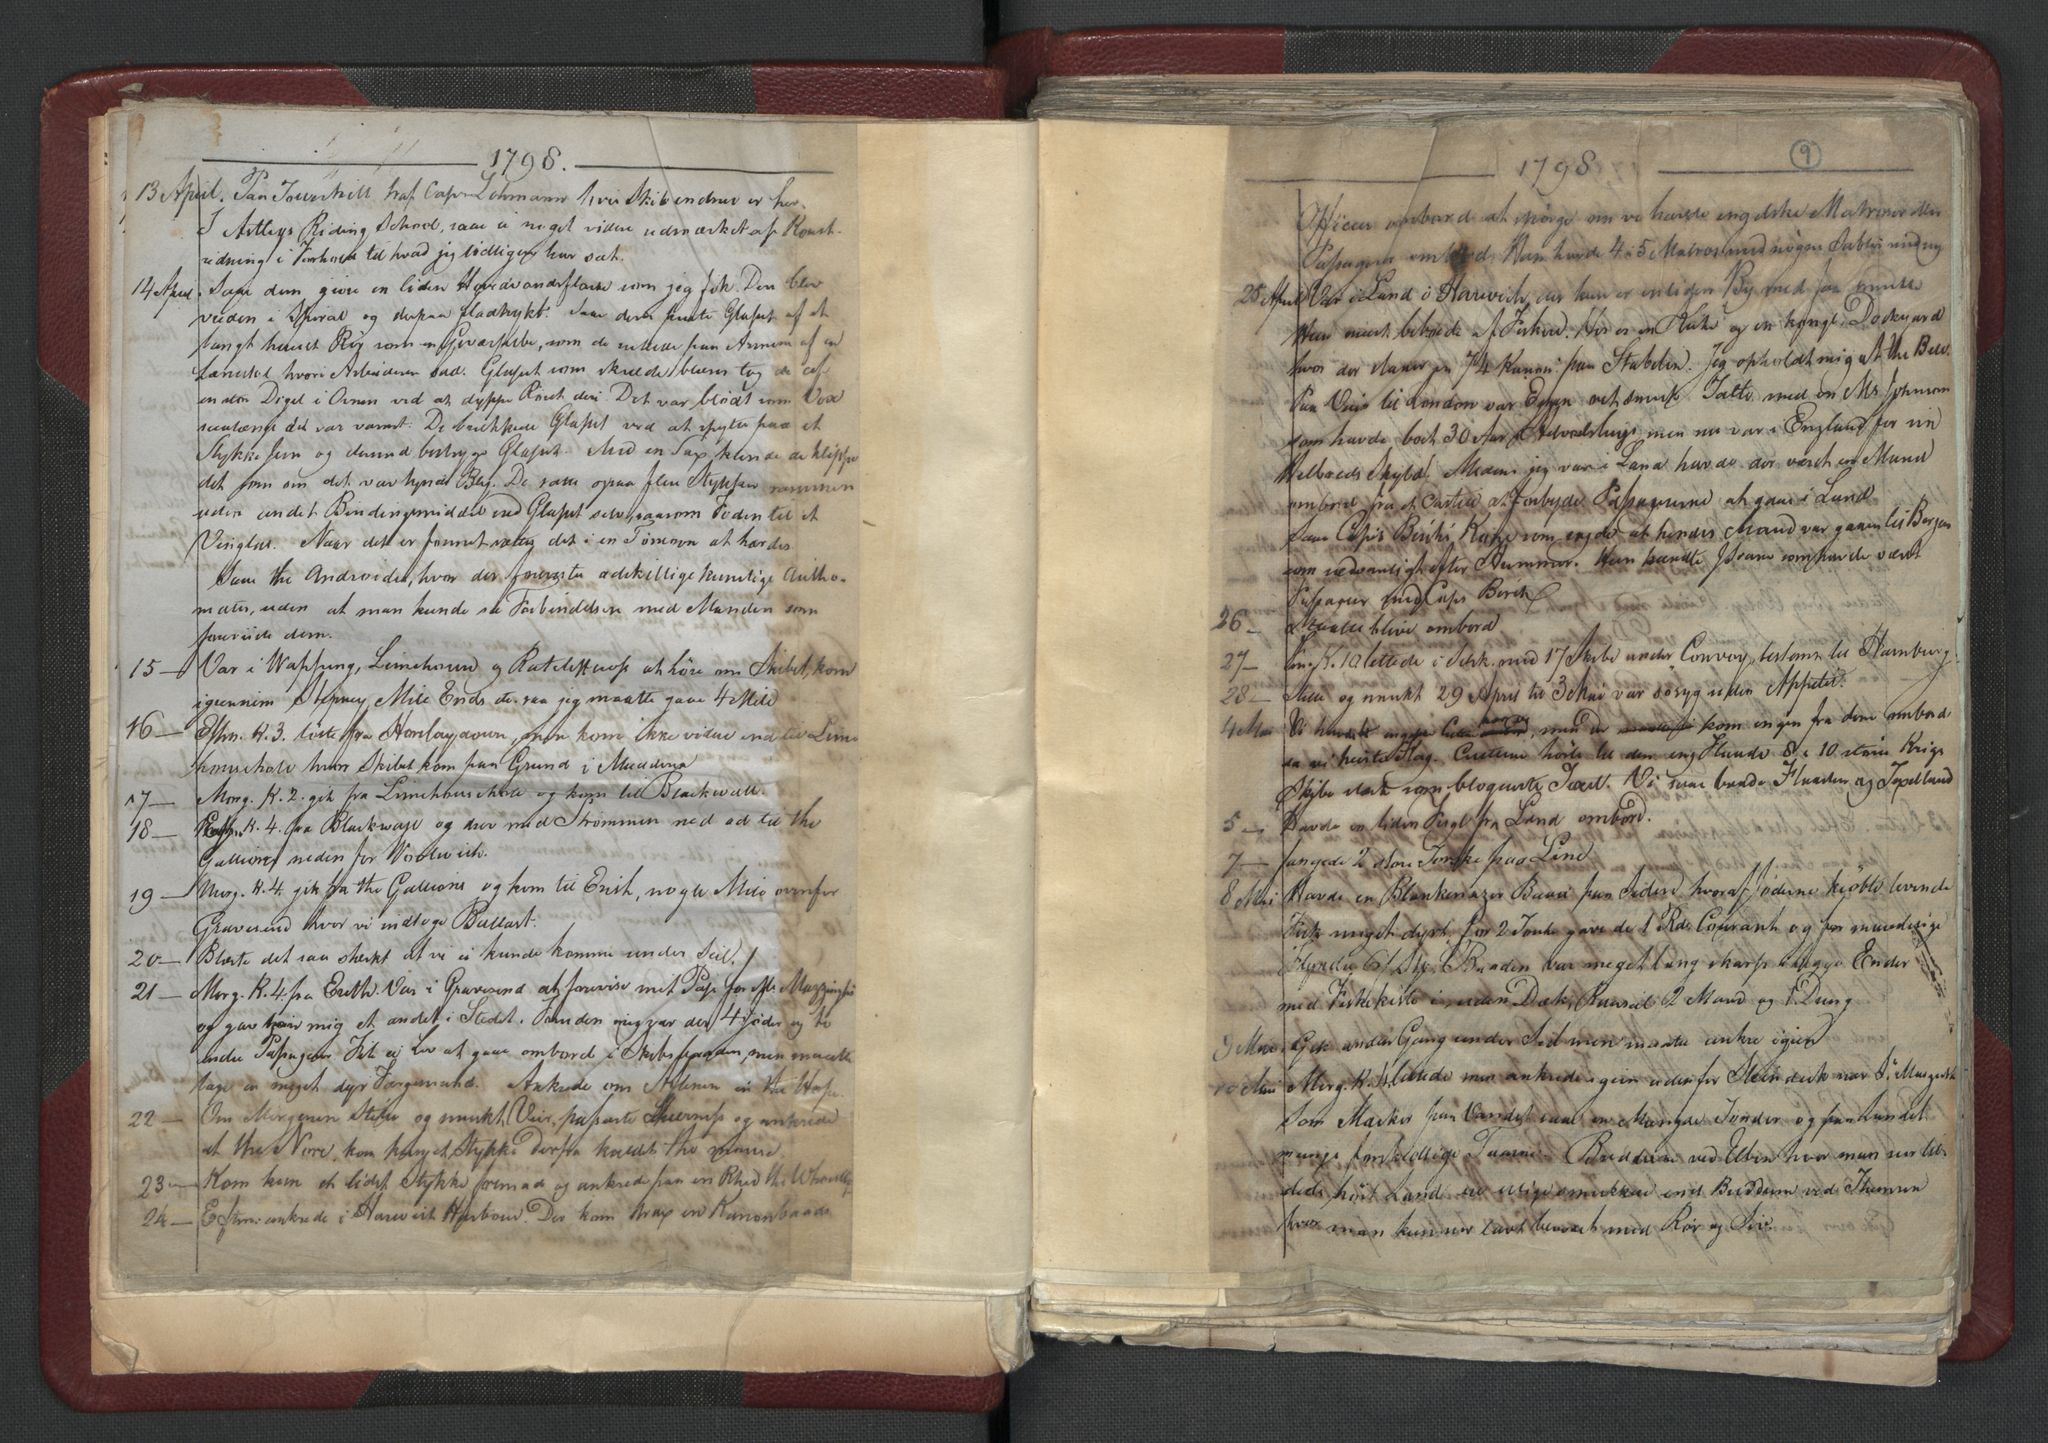 1798.
13 April. Paa Towerhill traf Capt. Lohmann hvis Skib endnu er her.
I Astleys Riding School, saae ei noget videre udmærket af Konst-
ridning i Forhold til hvad jeg tidligere har seet.
14 April. Saae dem giøre en liden som jeg fik. Den blev
vreden i Spiral og derpaa fladtrykt. Saae dem puste Glasset af et
langt huult Rør som en Geværpibe, som de rullede paa Armene af en
Lænestol hvori Arbeideren sad. Glasset som skulde blæses tog de af
en stor Digel i Ovnen ved at dyppe Røret deri. Det var blødt som Vox
saalænge det var varmt. De Glasset ved at spytte paa et
Stykke Jern og dermed bestryge Glasset. Med en Sax kunde de klippe
det som om det var tyndt Blig. De satte ogsaa flere Stykker sammen
uden andet Bindingsmiddel end Glasset selv, saasom Foden til et
Viinglas. Naar det er formet sættes det i en Tømovn at hærdes.
Saae the Androides, hvor der foreviistes adskillige kunstige Autho-
mater, uden at man kunde se Forbindelsen med Manden som
foreviiste dem.
15 — Var i Wapping, Limehouse og Ratcliff at høre om Skibet, kom
igiennem Stepney Mile Ends saa jeg maatte gaae 4 Mile
16 — Eftm. K. 3. liste fra Horslaydown, men kom ikke videre end til Lime
househole hvor Skibet kom paa Grund i Mudderet
17 — Morg. K. 2. gik fra Limehousehole og kom til Blackwall.
18 — K. 4. fra Blackwall og drev med Strømmen ned ad til the
Gallions neden for Woolwich.
19 — Morg. K. 4. gik fra the Gallions og kom til Erith, nogle Mile ovenfor
Gravesend hvor vi indtoge Ballast.
20 — Blæste det saa stærkt at vi ei kunde komme under Seil.
21 — Morg. K. 4. fra Erith. Var i Gravesend at forevise mit Pas for Mr Mazzinghi
og gav mig et andet i Stedet. Foruden mig var der 4 Jøder og to
andre Passagerer. Fik ei Lov at gaae ombord i Skibsbaaden, men maatte
tage en meget dyr Færgemand. Ankrede om Aftenen in the Hope.
22 — Om Morgenen Stille og smukt Veir, passerte Sheerness og ankrede
at the Nore, kom kun et Stykke derfra
23 — Kom kun et lidet Stykke fremad og ankrede paa en Rhed the
24 — Eftm. ankrede i Harwich Harbour. Der kom strax en Kanonbaads
1798
9
Officeer ombord at spørge om vi havde engelske Matroser eller
Passagerer ombord. Han havde 4 à 5 Matroser med nøgne Sabler med sig
25 April Var i Land i Harwich, der kun er en liden By med faa
Huse mest beboede af Fiskere. Her er en Kirke og en kongl. Dockyard
hvor der staaer en 74 Kanon: paa Stabelen. Jeg opholdt mig at the Bell.
Paa Veien til London var Egnen ret smuk. Talte med en Mr Johnson
som havde boet 30 Aar i men nu var i England for sin
Helbreds Skyld. Medens jeg var i Land havde der været en Mand
ombord fra et Cartel at forbyde Passagererne at gaae i Land
Saae Capt. Birchs Kone som sagde at hendes Mand var gaaen til Bergen
som sædvanligt efter Hummer. Hun kiendte som havde været
Passager med Capt. Birch
26 — Maatte blive ombord
27 — K. 10 lettede i Selsk. med 17 Skibe under Convoy, bestemte til Hamburg.
28 — Stille og smukt 29 April til 3 Mai var søsyg uden Appetit.
4 Mai Vi men der kom ingen fra dem ombord
da vi heiste Flag. Cutterne hørte til den eng. Flaade 8 à 10 store Krigs
Skibe som bloquerte Texel. Vi saae baade Flaaden og Texelland
5 — Havde en liden Fugl fra Land ombord.
7 — fangede 2 store Torske paa Line
8 Mai Havde en Blankeneser Baad paa Siden, hvoraf Jøderne kiøbte levende
Fisk meget dyrt, for 2 Torske gave de 1 Rdr. Courant og for maadelige
Flyndre 6 Baaden var meget lang skarp i begge Ender
med Fiskekiste i, uden Dæk, Raaseil 2 Mand og 1 Dreng
9 Mai Gik anden Gang under Seil men maatte ankre igien
10 Mai Morg. K. lettede men ankrede igien udenfor
Som Mærker paa Vandet saae en Mængde Tønder og paa Landet
mange forskiellige Taarne. Bredderne ved Elben hvor man seer
deels høit Land, ere ulige smukkere end Bredderne ved Themsen
hvor man kun seer lavt bevoxet med Rør og Siv.